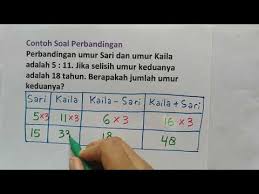 Contoh Soal Perbandingan
Perbandingan umur Sari dan umur Kaila
adalah 5 : 11. Jika selisih umur keduanya
adalah 18 tahun. Berapakah jumlah umur
keduanya?
Sari Kaila Kaila – Sari Kaila + Sari
5×3 11×3 6 ×3 16 ×3
15 33 18 48